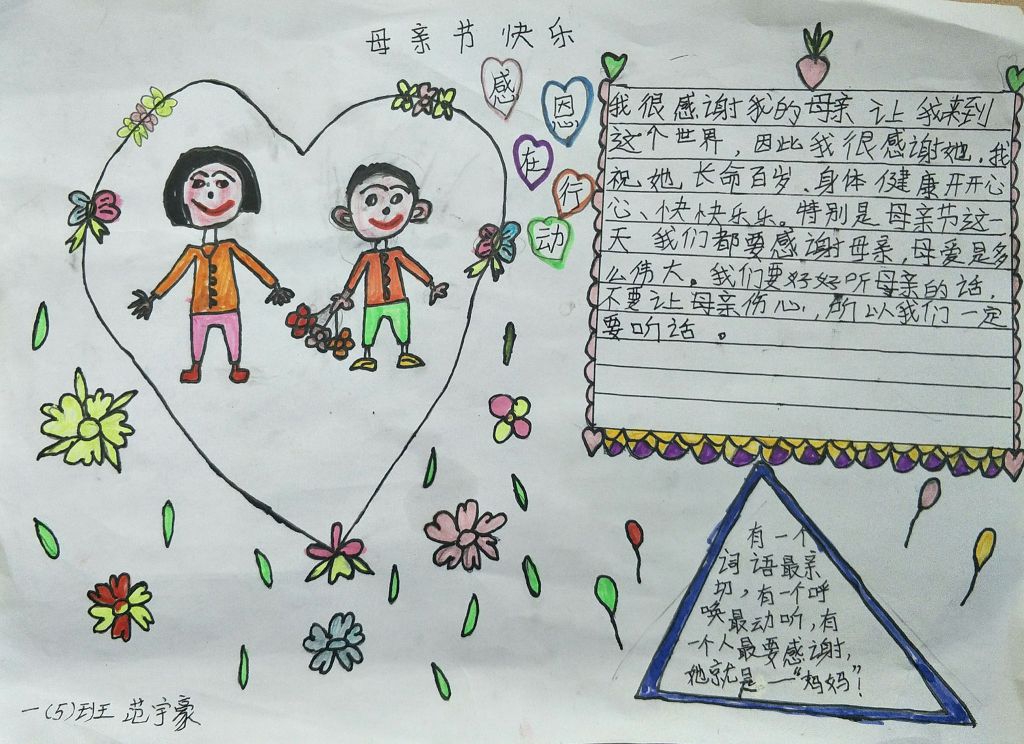 母亲节快乐
感
恩
在
行
动
我很感谢我的母亲让我来到
这个世界，因此我很感谢她，我
祝她长命百岁、身体健康开开心
心、快快乐乐。特别是母亲节这一
天我们都要感谢母亲，母爱是多
么伟大。我们要好好听母亲的话，
不要让母亲伤心，所以我们一定
要听话。
有一个
词语最亲
切，有一个呼
唤最动听，有
一个人最要感谢，
她就是——“妈妈”！
一(5)班 范宇豪